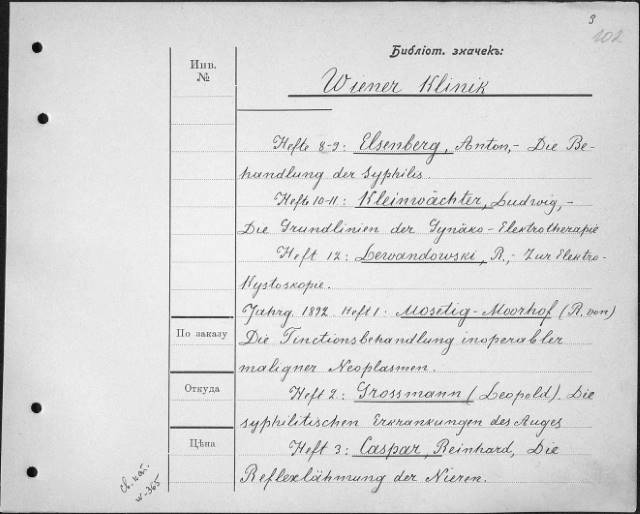 3
202
Библіот. значекъ:
Инв.
№
Wiener Klinik
Hefte 8-9: Elsenberg, Anton,- Die Be-
handlung der Syphilis.
Hefte 10-11: Kleinwächter, Ludwig,-
Die Grundlinien der Gynäko-Elektrotherapie
Heft 12: Lewandowski, R.,- Zur Elektro-
Kystoskopie.
Jahrg. 1892 Heft 1: Mosetig-Moorhof (R. von)
По заказу
Die Tinctionsbehandlung inoperabler
maligner Neoplasmen.
Откуда
Heft 2: Grossmann (Leopold). Die
syphilitischen Erkrankungen des Auges
Цѣна
Heft 3: Caspar, Reinhard, Die
Reflexlähmung der Nieren.
w-365